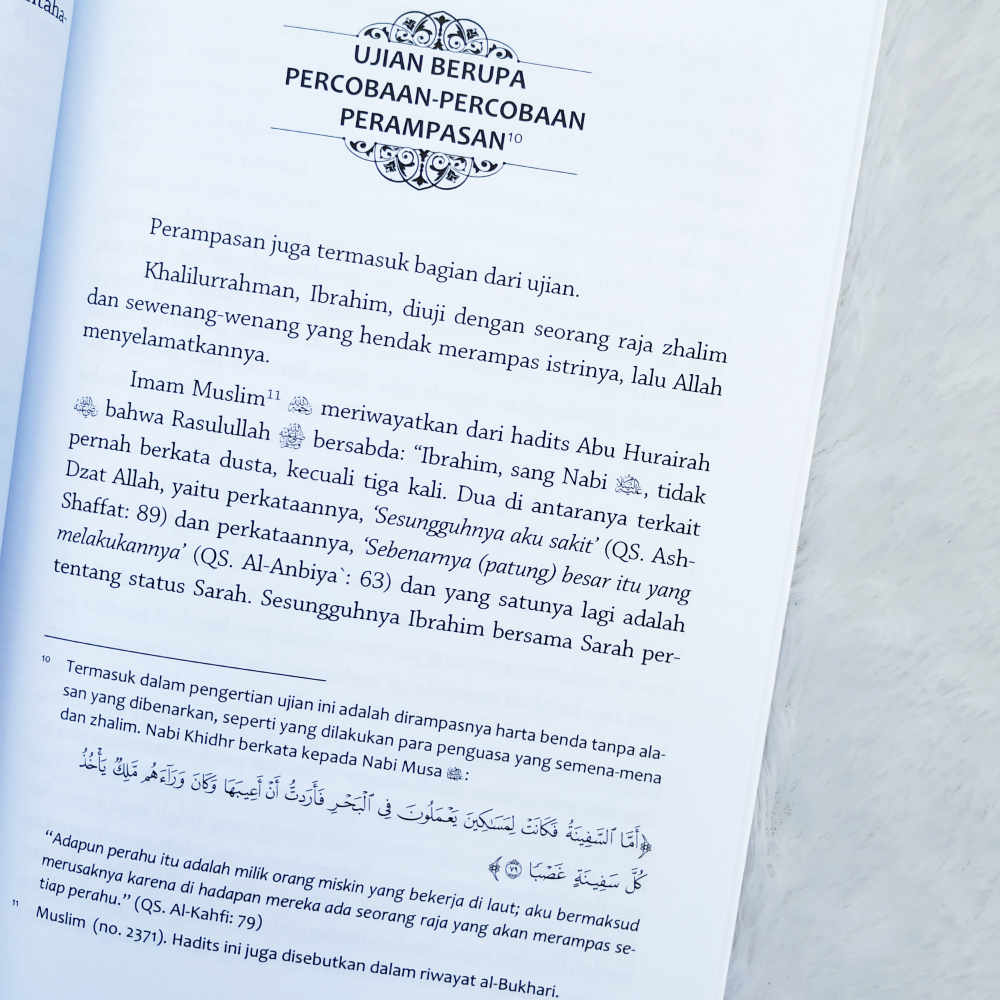 UJIAN BERUPA
PERCOBAAN-PERCOBAAN
PERAMPASAN¹⁰
Perampasan juga termasuk bagian dari ujian.
Khalilurrahman, Ibrahim, diuji dengan seorang raja zhalim
dan sewenang-wenang yang hendak merampas istrinya, lalu Allah
menyelamatkannya.
Imam Muslim¹¹ meriwayatkan dari hadits Abu Hurairah
bahwa Rasulullah ﷺ bersabda: “Ibrahim, sang Nabi, tidak
pernah berkata dusta, kecuali tiga kali. Dua di antaranya terkait
Dzat Allah, yaitu perkataannya, ‘Sesungguhnya aku sakit’ (QS. Ash-
Shaffat: 89) dan perkataannya, ‘Sebenarnya (patung) besar itu yang
melakukannya’ (QS. Al-Anbiya`: 63) dan yang satunya lagi adalah
tentang status Sarah. Sesungguhnya Ibrahim bersama Sarah per-
¹⁰ Termasuk dalam pengertian ujian ini adalah dirampasnya harta benda tanpa ala-
san yang dibenarkan, seperti yang dilakukan para penguasa yang semena-mena
dan zhalim. Nabi Khidhr berkata kepada Nabi Musa :
﴿أَمَّا ٱلسَّفِينَةُ فَكَانَتْ لِمَسَٰكِينَ يَعْمَلُونَ فِي ٱلْبَحْرِ فَأَرَدتُّ أَنْ أَعِيبَهَا وَكَانَ وَرَآءَهُم مَّلِكٌ يَأْخُذُ
كُلَّ سَفِينَةٍ غَصْبًا ٧٩﴾
“Adapun perahu itu adalah milik orang miskin yang bekerja di laut; aku bermaksud
merusaknya karena di hadapan mereka ada seorang raja yang akan merampas se-
tiap perahu.” (QS. Al-Kahfi: 79)
¹¹ Muslim (no. 2371). Hadits ini juga disebutkan dalam riwayat al-Bukhari.